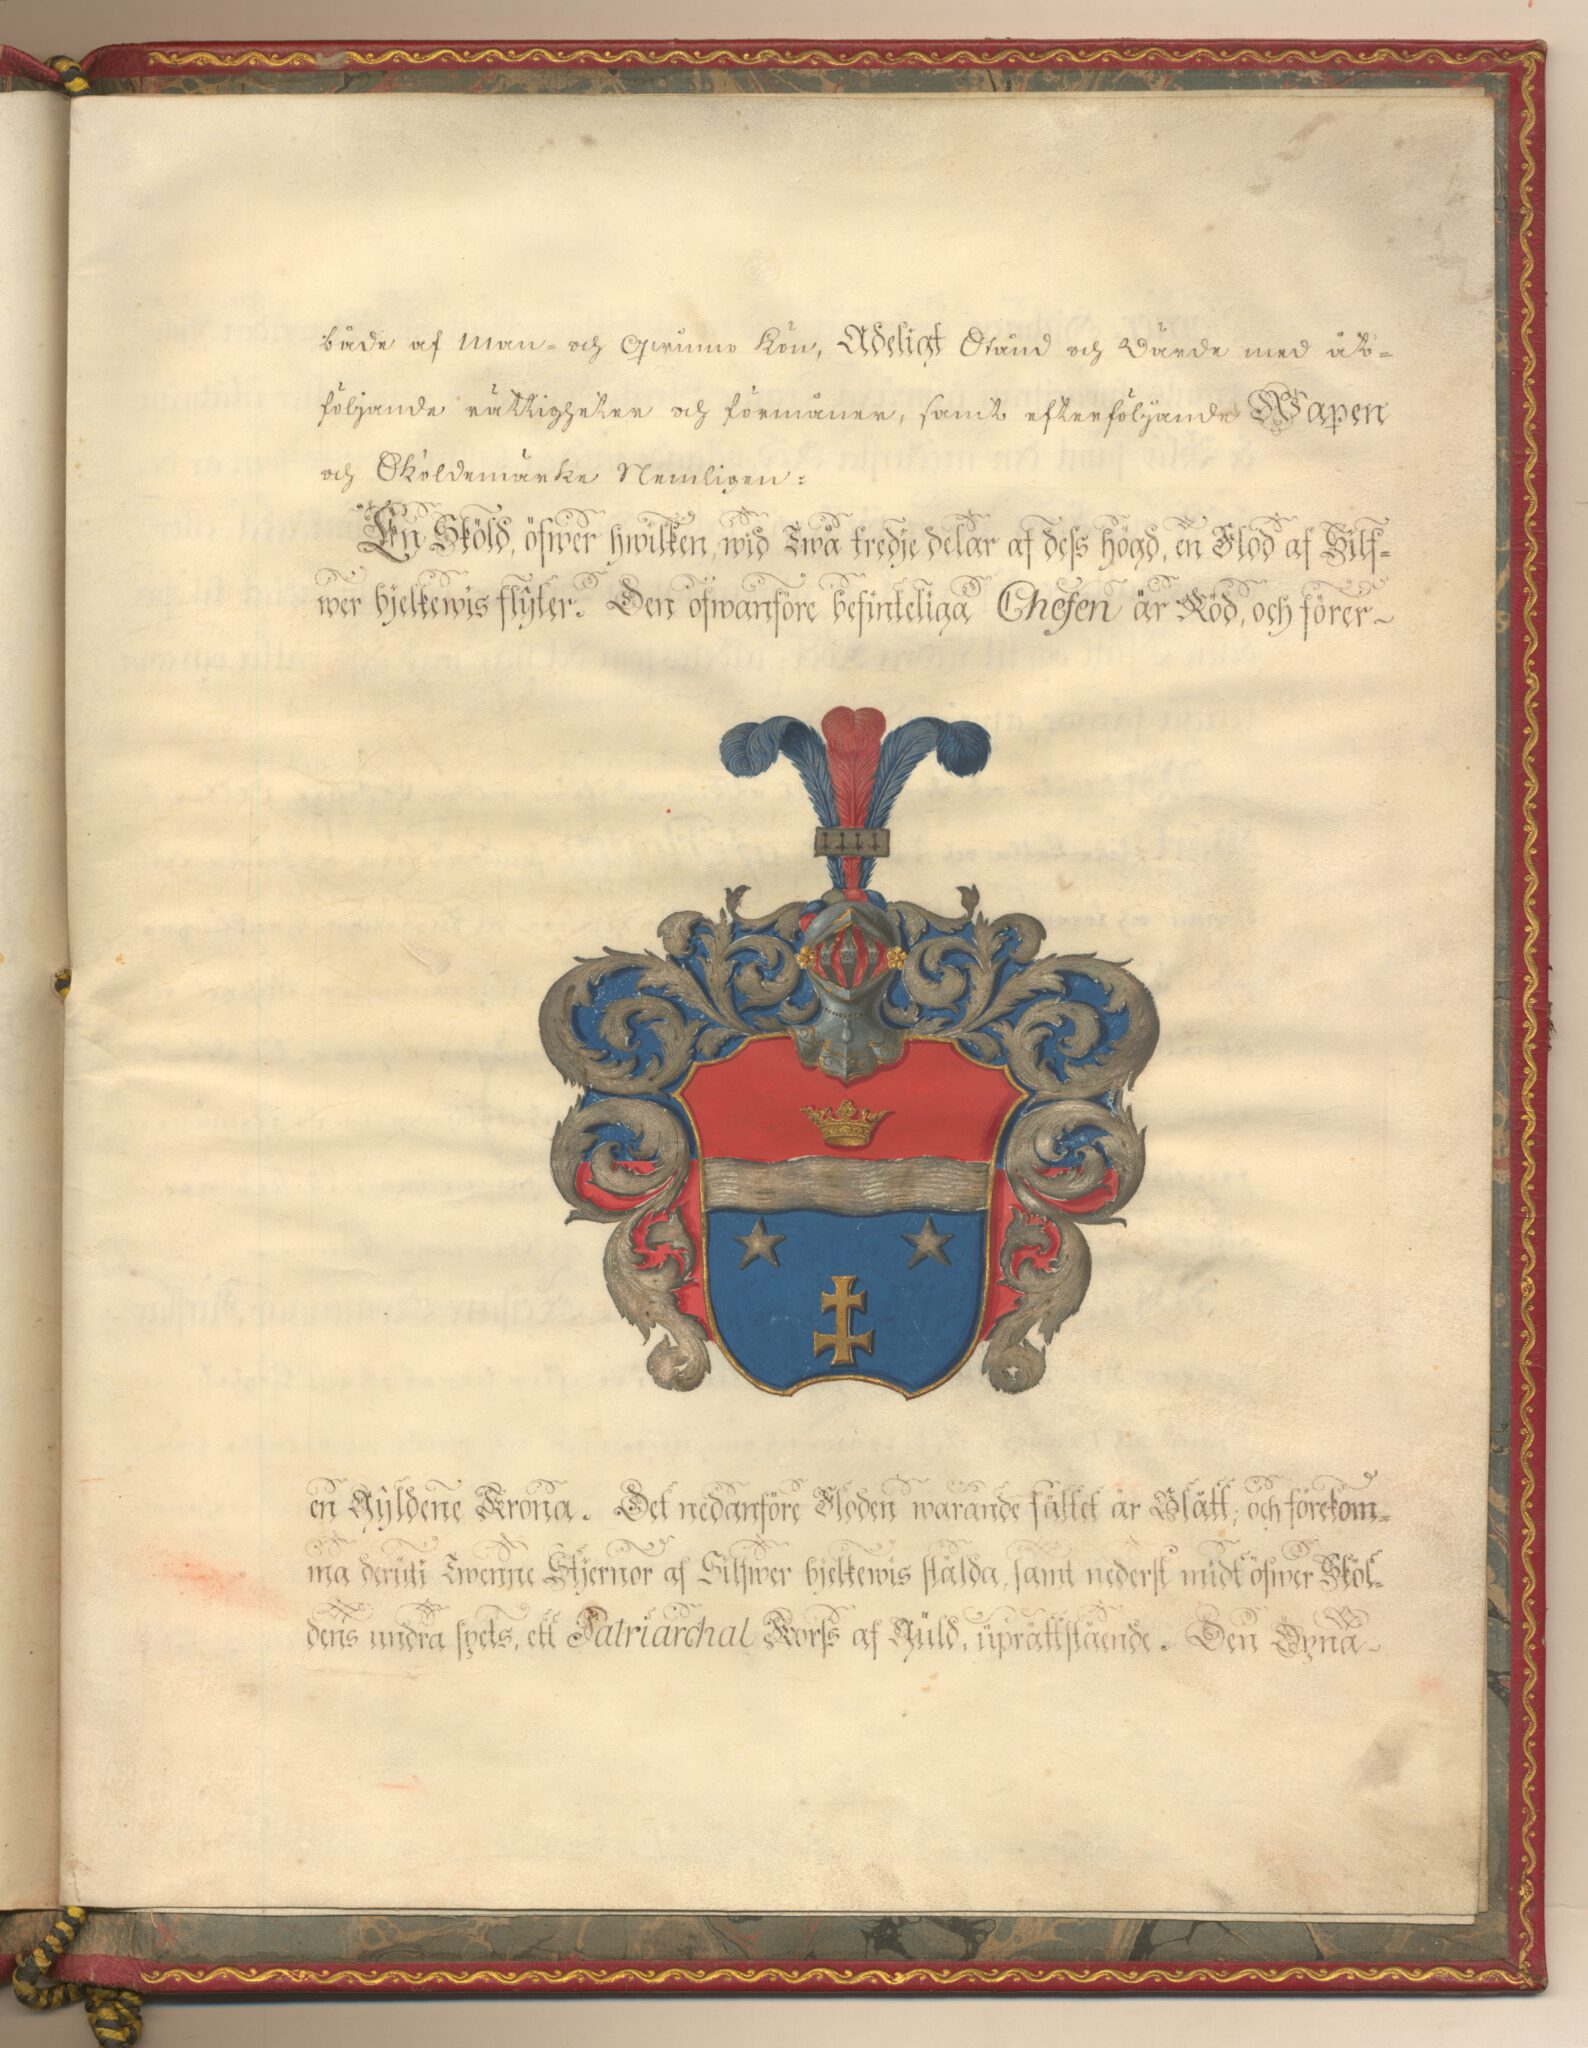 både af Man- och Qvinno Kön, Adeligt Stånd och Värde med åt-
följande rättigheter och förmåner, samt efterföljande Wapen
och Sköldemärke Nemligen:
En Sköld, öfwer hwilken, wid Twå tredje delar af dess högd, en Flod af Silf-
wer bjelkewis flyter. Den ofwanföre befinteliga Chefen är Röd, och förer
en Gyldene Krona. Det nedanföre Floden warande fältet är Blått, och förekom-
ma deruti Twenne Stjernor af Silfwer bjelkewis stälda, samt nederst midt öfwer Sköl-
dens undra spets, ett Patriarchal Korss af Guld, uprättstående. Den Öpna